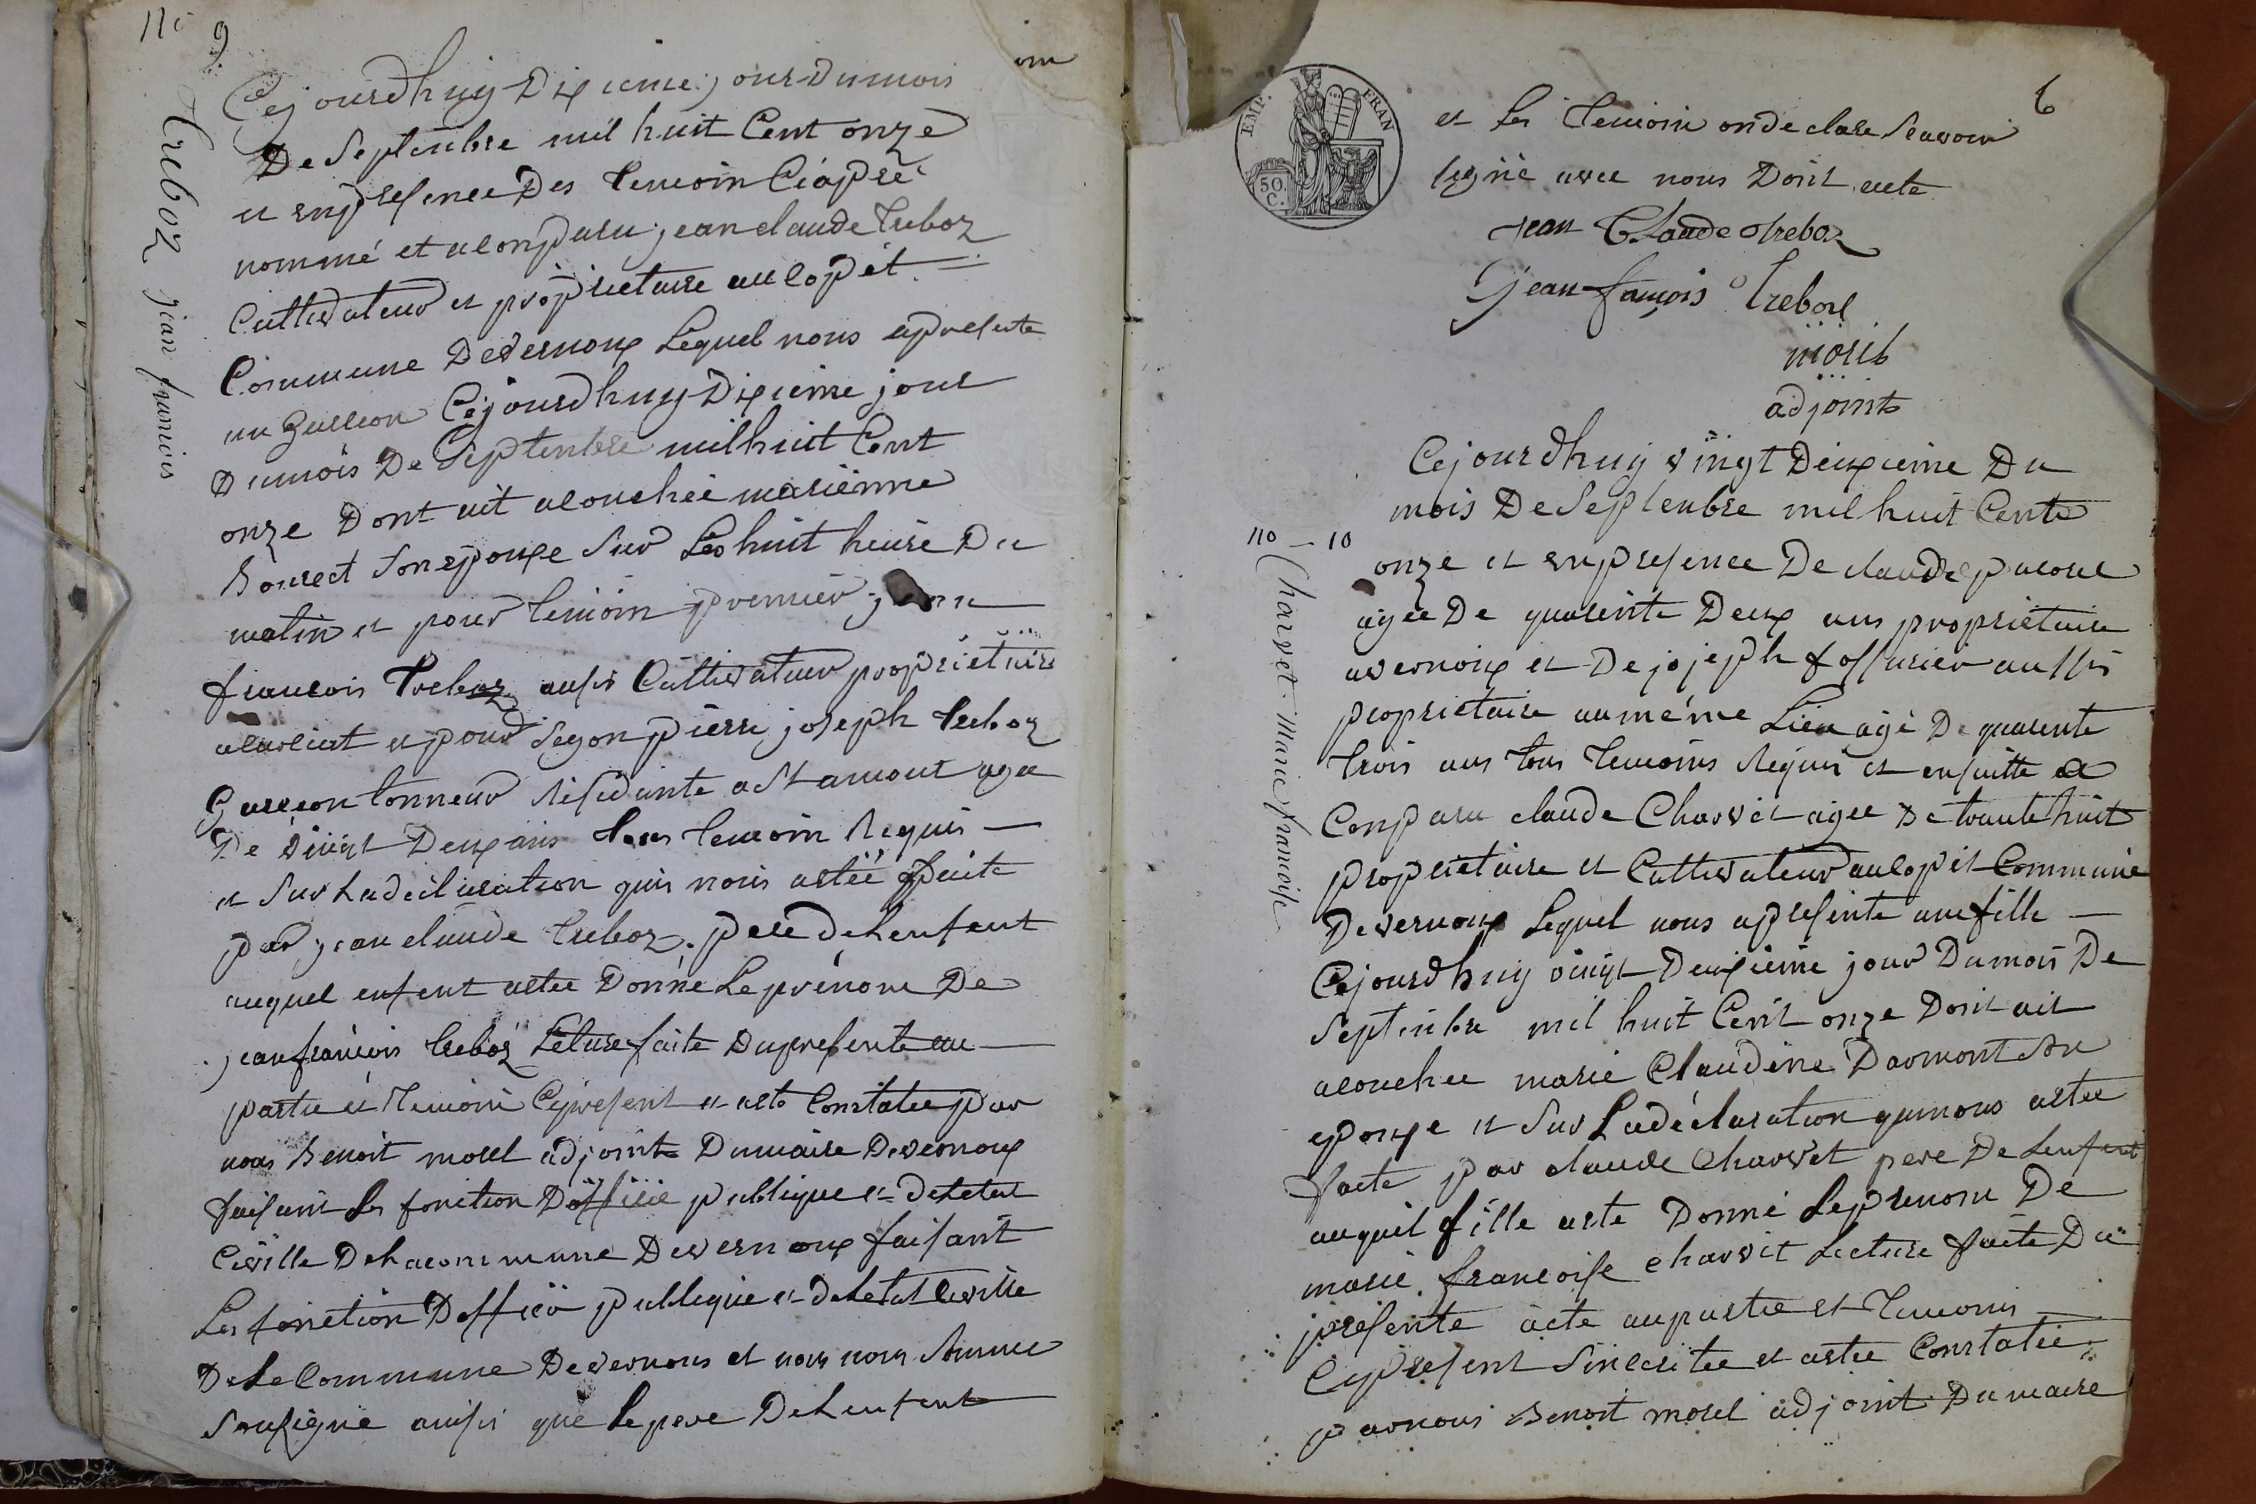 110 9
Treboz jean francois
Cejourdhuy Dixieme jour Dumois
De Septenbre mil huit Cent onze
et enpresence Des temoin Ciaprè
nommé et aconparu jean claude Treboz
Cultivateur et proprietaire au lopit
Commune Devernoux Lequel nous apresente
un garcon Cejourdhuy Dixieme jour
Dumois De Septenbre mil huit Cent
onze Dont ait acouchée mariënne
Bourect son epouxe sur Les huit heure Du
matin et pour temoin premier jean
francois Treboz aussi Cultivateur proprietaire
et pour segon pierre joseph Treboz
garcon tonneur residante a St amour agee
De vingt Deux ans tous temoin Requis
et sur Ladeclaration qui nous astée faite
par jean claude Treboz pere deLenfent
auquel enfent astee Donné Leprénom De
jeanfrancois Treboz Leture faite Dupresente au
partie et Temoin Cypresent et aste Constatee par
nous Benoit morel adjoint Dumaire Devernoux
faisant Les fonction Dofficié publique et deLetat
Civille DeLacommune Devernoux faisant
Les fonction Dofficié publique et deLetat Civille
DeLe Commune Devernous et nous nous somme
sousigné ainsi que Le pere DeLenfent
6
EMP. FRAN
50. C.
et Les Temoin onde clare Seavoir
signié avec nous Dont acte
jean Claude Treboz
jean francois Trebos
morel
adjoint
Cejourdhuy vingt Deuxieme Du
mois De Septenbre mil huit Cent
110 - 10
Charvet Marie francoise
onze et enpresence De claude pacoul
agee De quarente Deux ans proprietaire
avernoix et De jojeph fossurier aussi
proprietaire aumême Lieu agé De quarente
trois ans tous temoins Requis et ensuitte a
Conparu claude Charvet agee De trante huit
proprietaire et Cultivateur au lopit Commune
Devernoux Lequel nous apresente une fille
Cejourdhuy vingt Deuxieme jour Dumois De
Septenbre mil huit Cent onze Dont ait
acouchee marie Claudine Daomont Son
epouxe et sur Ladeclaration qui nous astee
faite par claude Charvet pere De Lenfent
auquel fille aste Donné Leprenom De
marie francoise charvet Lecture faite Du
presente acte aupartie et Temoins
Cypresent sinceritee et astee Constatée
parnous Benoit morel adjoint Dumaire